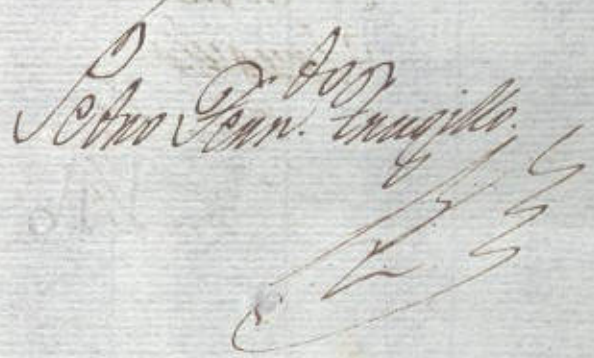 Pedro Fern.^dez Truxillo.